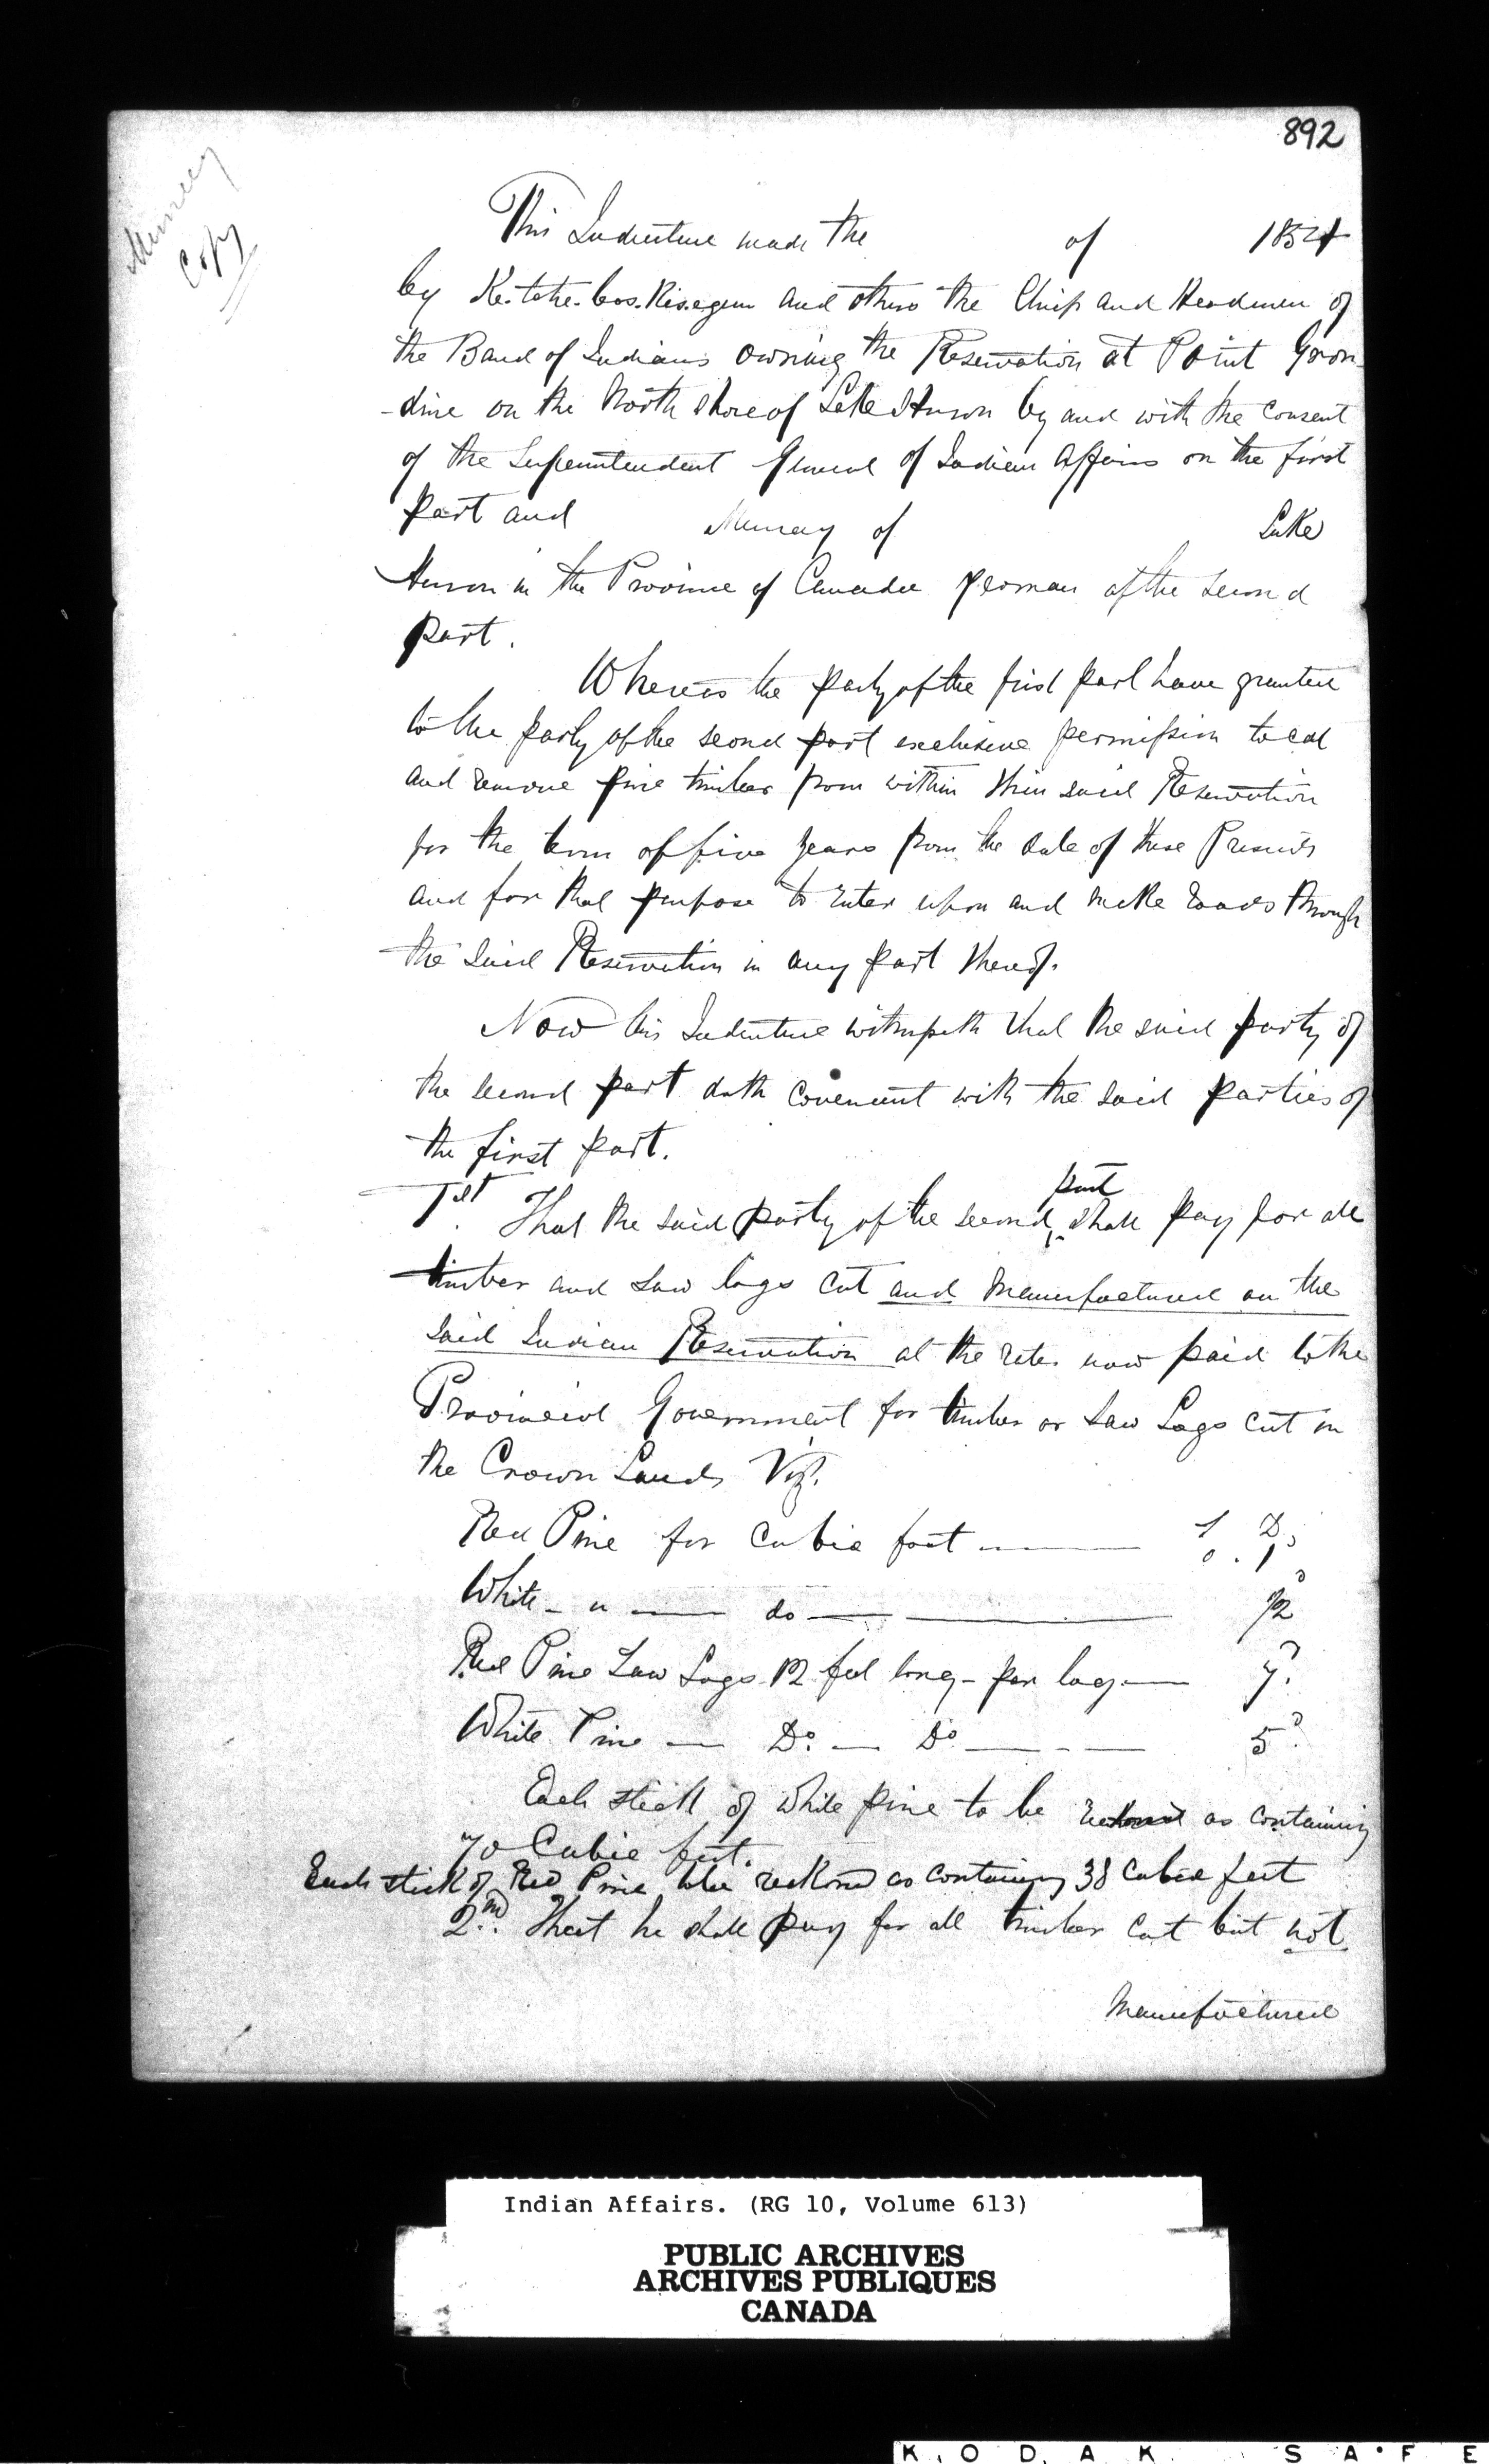 892
Copy
This Indenture made the of 1854
by Ke.tche.bos.Kis.egun and others the Chiefs and Headmen of
the Band of Indians owning the Reservation at Point Gron-
-dine on the North Shore of Lake Huron by and with the consent
of the Superintendent General of Indian Affairs on the first
part and Murray of Lake
Huron in the Province of Canada yeoman of the second
part.
Whereas the party of the first part have granted
to the party of the second part exclusive permission to cut
and remove pine timber from within their said Reservation
for the term of five years from the date of these Presents
and for that purpose to enter upon and make roads through
the said Reservation in any part thereof.
Now this Indenture witnesseth that the said party of
the second part doth covenant with the said parties of
the first part.
1st That the said party of the second part shall pay for all
timber and saw logs cut and manufactured on the
said Indian Reservation at the rates now paid to the
Provincial Government for timber or Saw Logs cut on
the Crown Lands Viz.
Red Pine for Cubic foot S D
0 . 1
White - " do 1/2
Red Pine Saw Logs 12 feet long - per log 7D
White Pine Do. Do 5D
Each stick of White pine to be as containing
70 Cubic feet.
Each stick of Red Pine to be reckoned as containing 38 cubic feet
2nd. That he shall pay for all timber cut but not
manufactured
Indian Affairs. (RG 10, Volume 613)
PUBLIC ARCHIVES
ARCHIVES PUBLIQUES
CANADA
KODAK SAFE